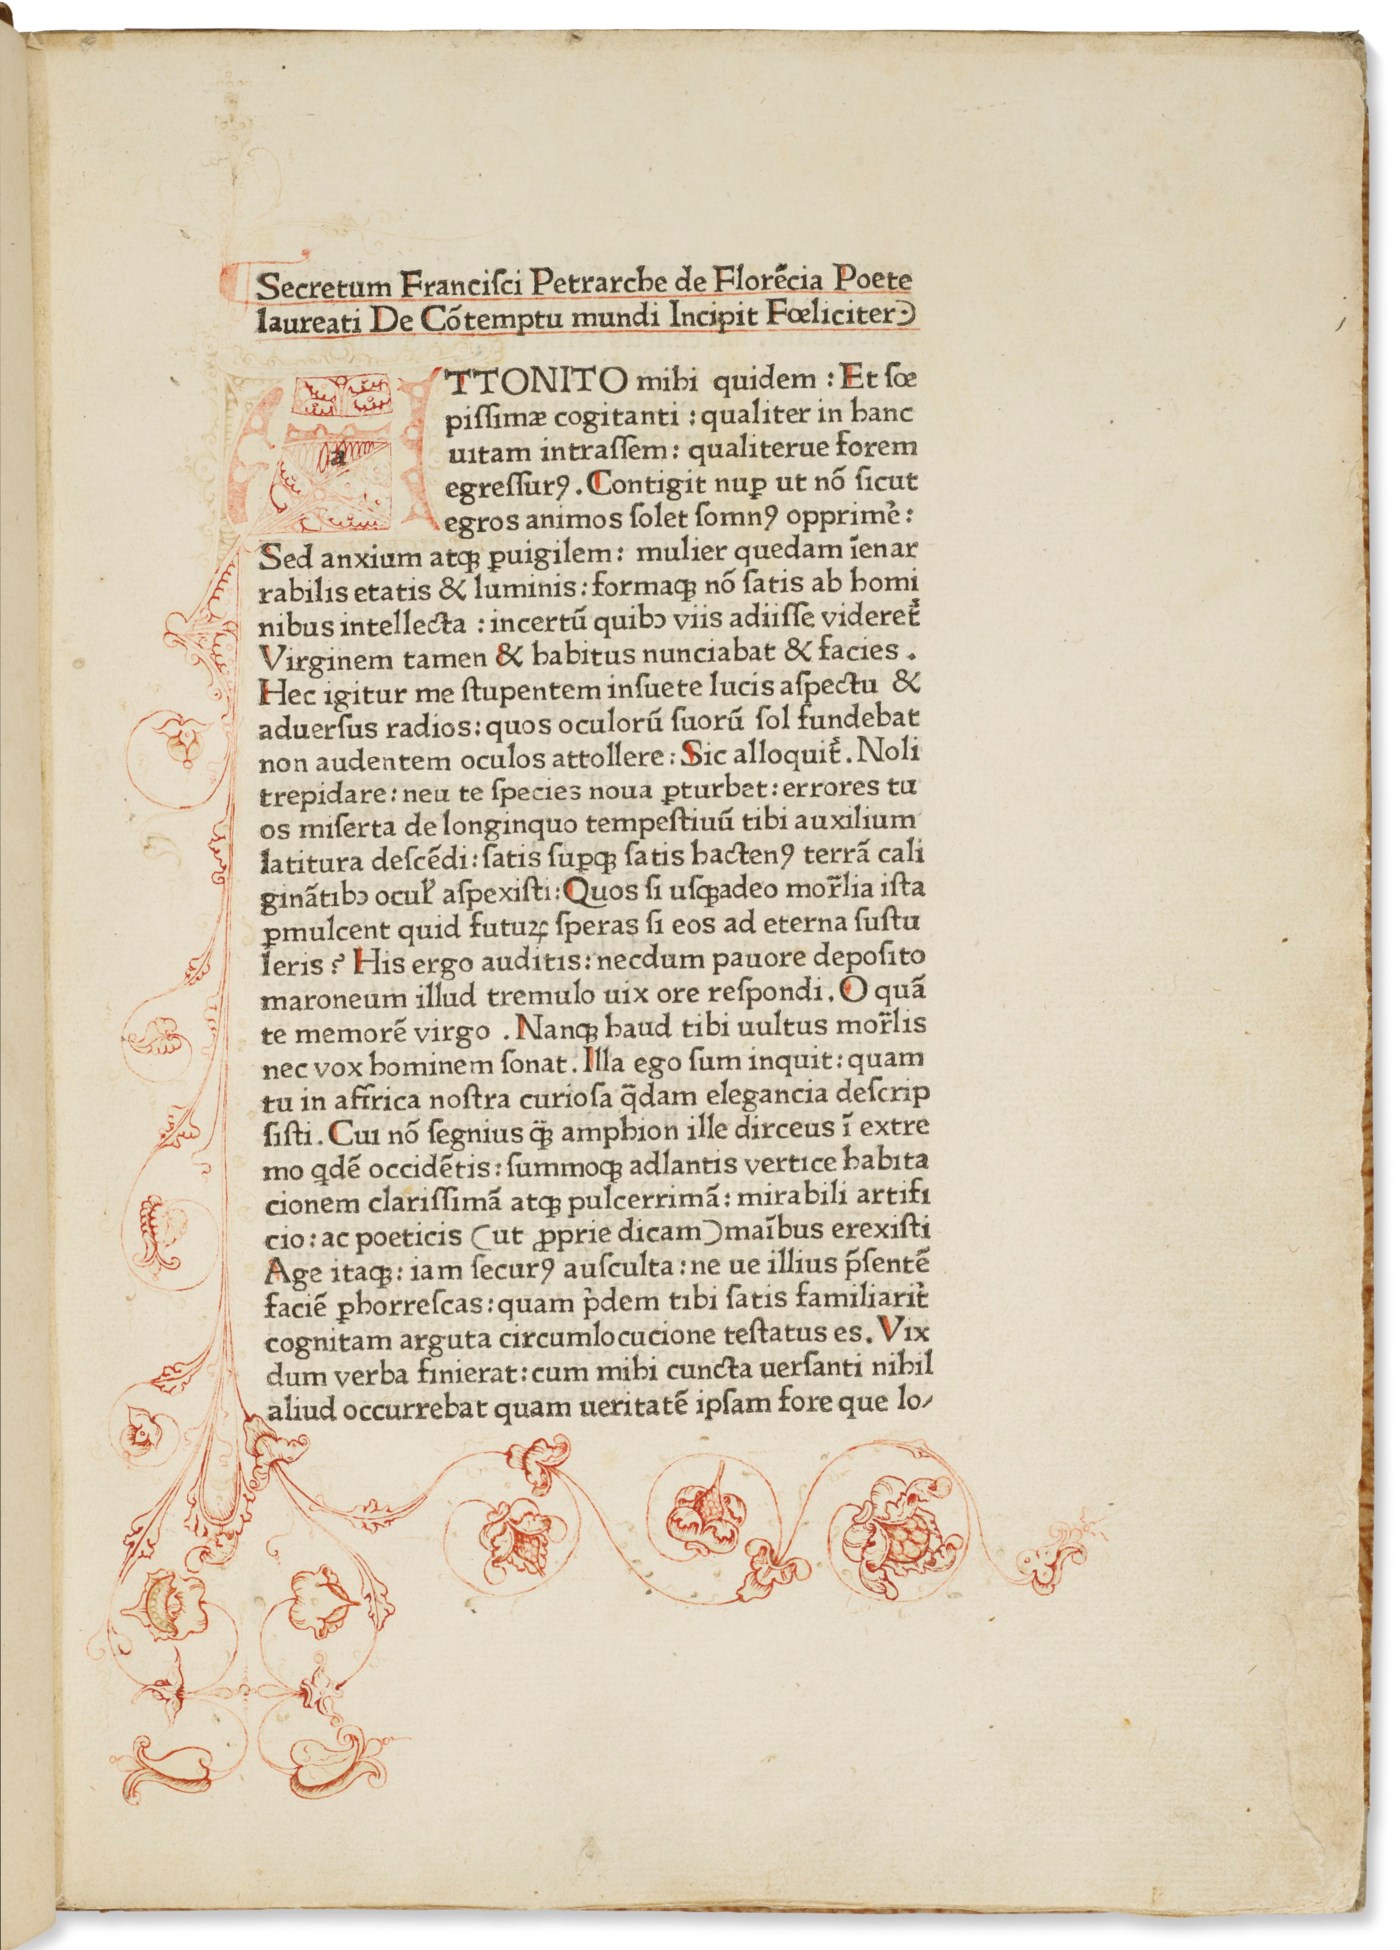 Secretum Franciſci Petrarche de Florẽcia Poete
laureati De Cõtemptu mundi Incipit Fœliciter
a
TTONITO mihi quidem : Et ſœ
piſſimæ cogitanti : qualiter in hanc
uitam intraſſem : qualiterue forem
egreſſurꝰ . Contigit nuꝑ ut nõ ſicut
egros animos ſolet ſomnꝰ opprime᷑ :
Sed anxium atqꝫ ꝑuigilem : mulier quedam ĩenar
rabilis etatis & luminis : formaqꝫ nõ ſatis ab homi
nibus intellecta : incertũ quibꝫ viis adiiſſe videret᷑
Virginem tamen & habitus nunciabat & facies .
Hec igitur me ſtupentem inſuete lucis aſpectu &
aduerſus radios : quos oculorũ ſuorũ ſol fundebat
non audentem oculos attollere : Sic alloquit᷑ . Noli
trepidare : neu te ſpecies noua ꝑturbet : errores tu
os miſerta de longinquo tempeſtiuũ tibi auxilium
latitura deſcẽdi : ſatis ſuꝑqꝫ ſatis hactenꝰ terrã cali
ginãtibꝫ ocul᷑ aſpexiſti : Quos ſi uſqꝫadeo mor̃lia iſta
ꝑmulcent quid futuꝝ ſperas ſi eos ad eterna ſuſtu
leris ? His ergo auditis : necdum pauore depoſito
maroneum illud tremulo uix ore reſpondi . O quã
te memorẽ virgo . Nanqꝫ haud tibi uultus mor̃lis
nec vox hominem ſonat . Illa ego ſum inquit : quam
tu in affrica noſtra curioſa q̃dam elegancia deſcrip
ſiſti . Cui nõ ſegnius q̃ꝫ amphion ille dirceus ĩ extre
mo qͥdẽ occidẽtis : ſummoqꝫ adlantis vertice habita
cionem clariſſimã atqꝫ pulcerrimã : mirabili artifi
cio : ac poeticis (ut ꝓprie dicam) maĩbus erexiſti
Age itaqꝫ : iam ſecurꝰ auſculta : ne ue illius p̃ſentẽ
faciẽ ꝑhorreſcas : quam pͥdem tibi ſatis familiarit᷑
cognitam arguta circumlocucione teſtatus es . Vix
dum verba finierat : cum mihi cuncta uerſanti nihil
aliud occurrebat quam ueritatẽ ipſam fore que lo⸗